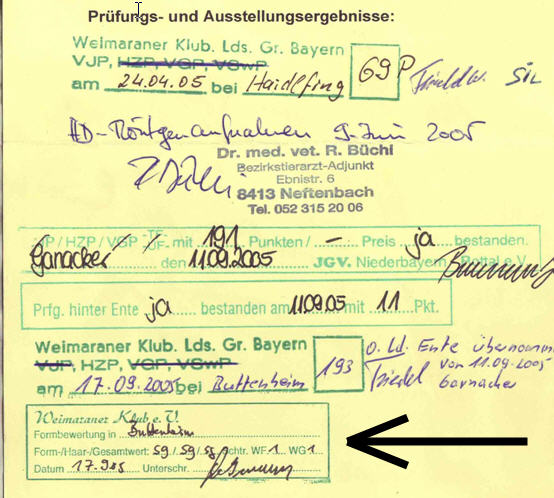 Prüfungs- und Ausstellungsergebnisse:
Weimaraner Klub. Lds. Gr. Bayern
VJP, HZP, VGP, VSwP
am 24.04.05 bei Haidlfing 69 P SIL
HD-Röntgenaufnahmen 9. Juni 2005
Dr. med. vet. R. Büchi
Bezirkstierarzt-Adjunkt
Ebnistr. 6
8413 Neftenbach
Tel. 052 315 20 06
VJP / HZP / VGP -TF- -ÜF- mit 191 Punkten / — Preis ja bestanden.
Ganacker den 11.09.2005 JGV. Niederbayern / Rottal e.V.
Prfg. hinter Ente ja bestanden am 11.09.05 mit 11 Pkt.
Weimaraner Klub. Lds. Gr. Bayern
VJP, HZP, VGP, VSwP
am 17.09.2005 bei Buttenheim 193
o. ld. Ente übernommen
von 11.09.2005
Ganacker
Weimaraner Klub e.V.
Formbewertung in Buttenheim
Form-/Haar-/Gesamtwert: sg / sg / sg Richtr. WF 1 WG 1
Datum 17.9.05 Unterschr.